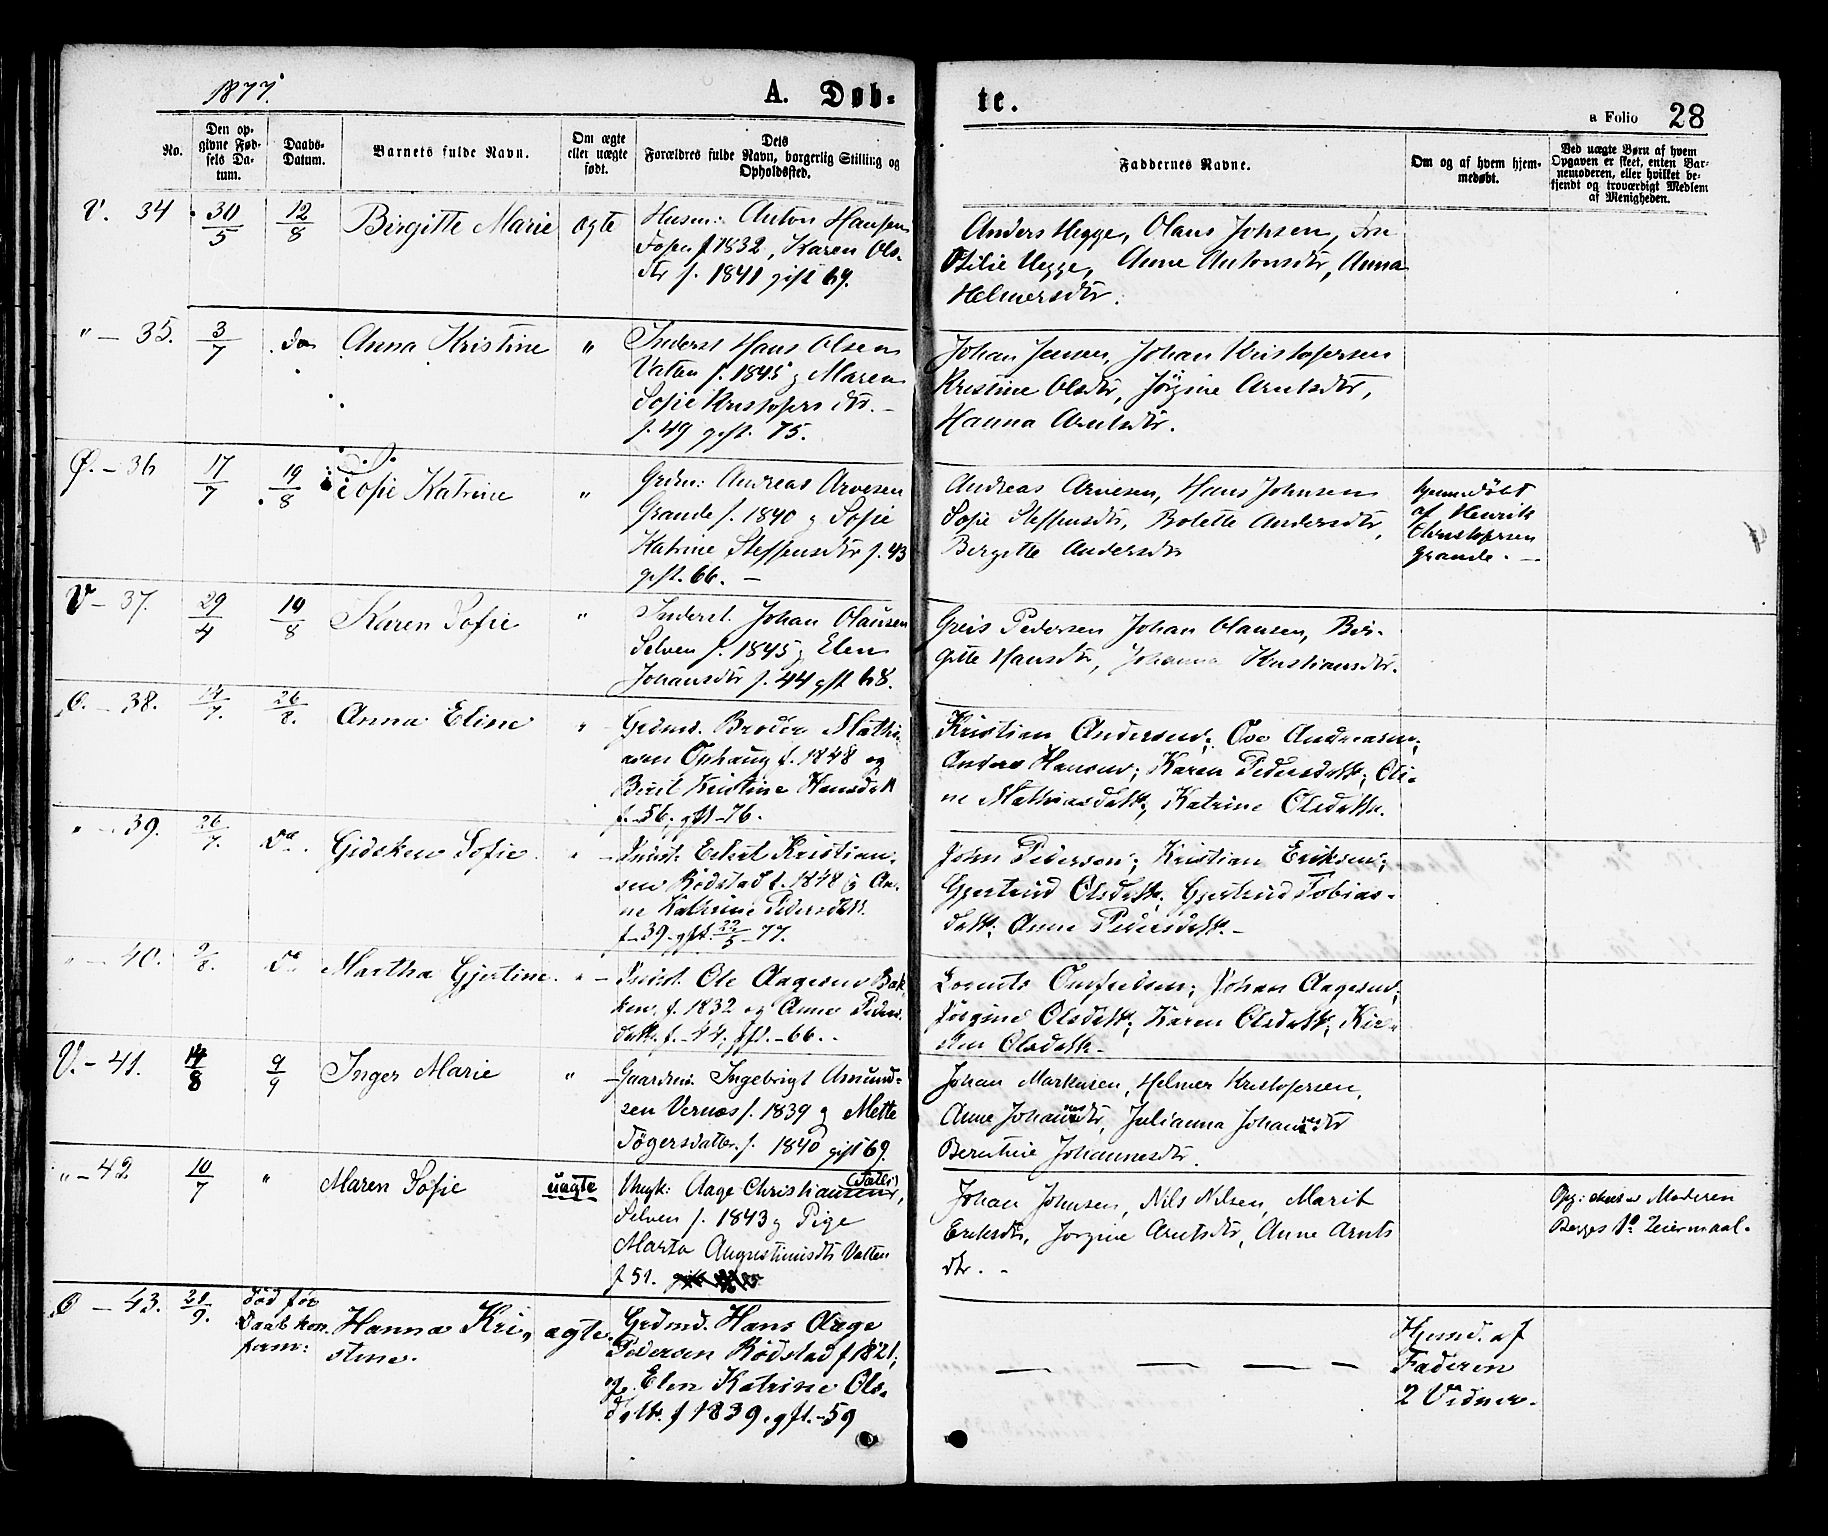 1877.
A. Døb-
te.
a Folio 28
No.
Den op-
givne Fød-
sels Da-
tum.
Daabs-
Datum.
Barnets fulde Navn.
Om ægte
eller uægte
født.
Dets
Forældres fulde Navn, borgerlig Stilling og
Opholdssted.
Faddernes Navne.
Om og af hvem hjem-
medøbt.
Ved uægte Børn af hvem
Opgaven er skeet, enten Bar-
nemoderen, eller hvilket be-
kjendt og troværdigt Medlem
af Menigheden.
V. 34 30/5 12/8 Birgitte Marie ægte
Husm: Anton Hansen
f 1832, Karen Ols-
dtr f. 1841 gift 69.
Anders Hegge, Olaus Johsen,
Otilie Hegge, Anne Antonsdtr, Anna
Helmersdtr.
" - 35. 3/7 do Anna Kristine "
Inderst Hans Olsen
Vatten f. 1845 g Maren
Sofie Kristofersdtr. -
f. 49 gift. 75.
Johan Jensen, Johan Kristofersen
Kristine Olsdtr, Jørgine Arntsdtr,
Hanna Arntsdtr.
Ø. - 36 17/7 19/8 Sofie Katrine "
Grdm: Andreas Arvesen
Grande f. 1840 g Sofie
Katrine Steffensdtr f. 43
gift. 66. -
Andreas Arvesen, Hans Johnsen
Sofie Steffensdtr, Bolette Andersdtr,
Bergitte Andersdtr
hjemmedøbt
af Henrik
Christofersen
Grande. -
V - 37. 29/4 19/8 Karen Sofie "
Inderst. Johan Olausen
Selven f. 1845 g Elen
Johansdtr f. 44 gift 68.
Greis Pedersen Johan Olausen, Bir-
gitte Hansdtr, Johanna Kristiansdtr.
Ø. - 38. 14/7. 26/8. Anna Eline "
Grdmd. Broder Mathi-
asen Ophaug f. 1848 og
Berit Kristine Hansdatt
f. -56. gft -76.
Kristian Andersen; Ove Andreasen;
Anders Hansen; Karen Pedersdatt; Oli-
ne Mathiasdatt; Katrine Olsdatt.
" - 39. 26/7. do. Gidsken Sofie. "
Indst. Erkel Kristian-
sen Rödstad f. 1848 g An-
ne Kathrine Pedersdatt.
f -39. gft. 22/5 -77.
John Pedersen; Kristian Eriksen;
Gjertrud Olsdatt; Gjertrud Tobias-
datt; Anne Pedersdatt. -
" - 40. 9/8. do Martha Gjertine. "
Indst. Ole Aagesen Bak-
ken. f. 1832 og Anne Peders-
datt. f. -44. gft. -66.
Lorents Johan Aagesen;
Jörgine Olsdatt; Karen Olsdatt; Kir-
sten Olsdatt -
V. - 41. 14/8 9/9 Inger Marie "
Gaardm. Ingebrigt Amund-
sen Vernes f. 1839 g Mette
Tøgersdatter. f. 1840 gift 69.
Johan Markusen, Helmer Kristofersen,
Anne Johansdtr, Julianna Johansdtr
Berntine Johannesdtr.
" - 42 10/7 " Maren Sofie uægte
Ungk: Aage Christiansen,
Selven f. 1843 g Pige
Marta Augustinusdtr Vatten
f 51.
Johan Johnsen, Nils Nilsen, Marit
Eriksdtr, Jørgine Arntsdtr, Anne Arnts
dtr. -
Moderen
Begges 1o Leiermaal.
Ø - 43. 21/9. død før
Daab kon-
firm: Hanna Kri-
stine. ægte.
Grdmd. Hans Aage
Pedersen Rödstad f 1821;
og Elen Katrine Ols-
datt. f 1839. gft. -59
Hjemd. af
Faderen
2 Vidner.